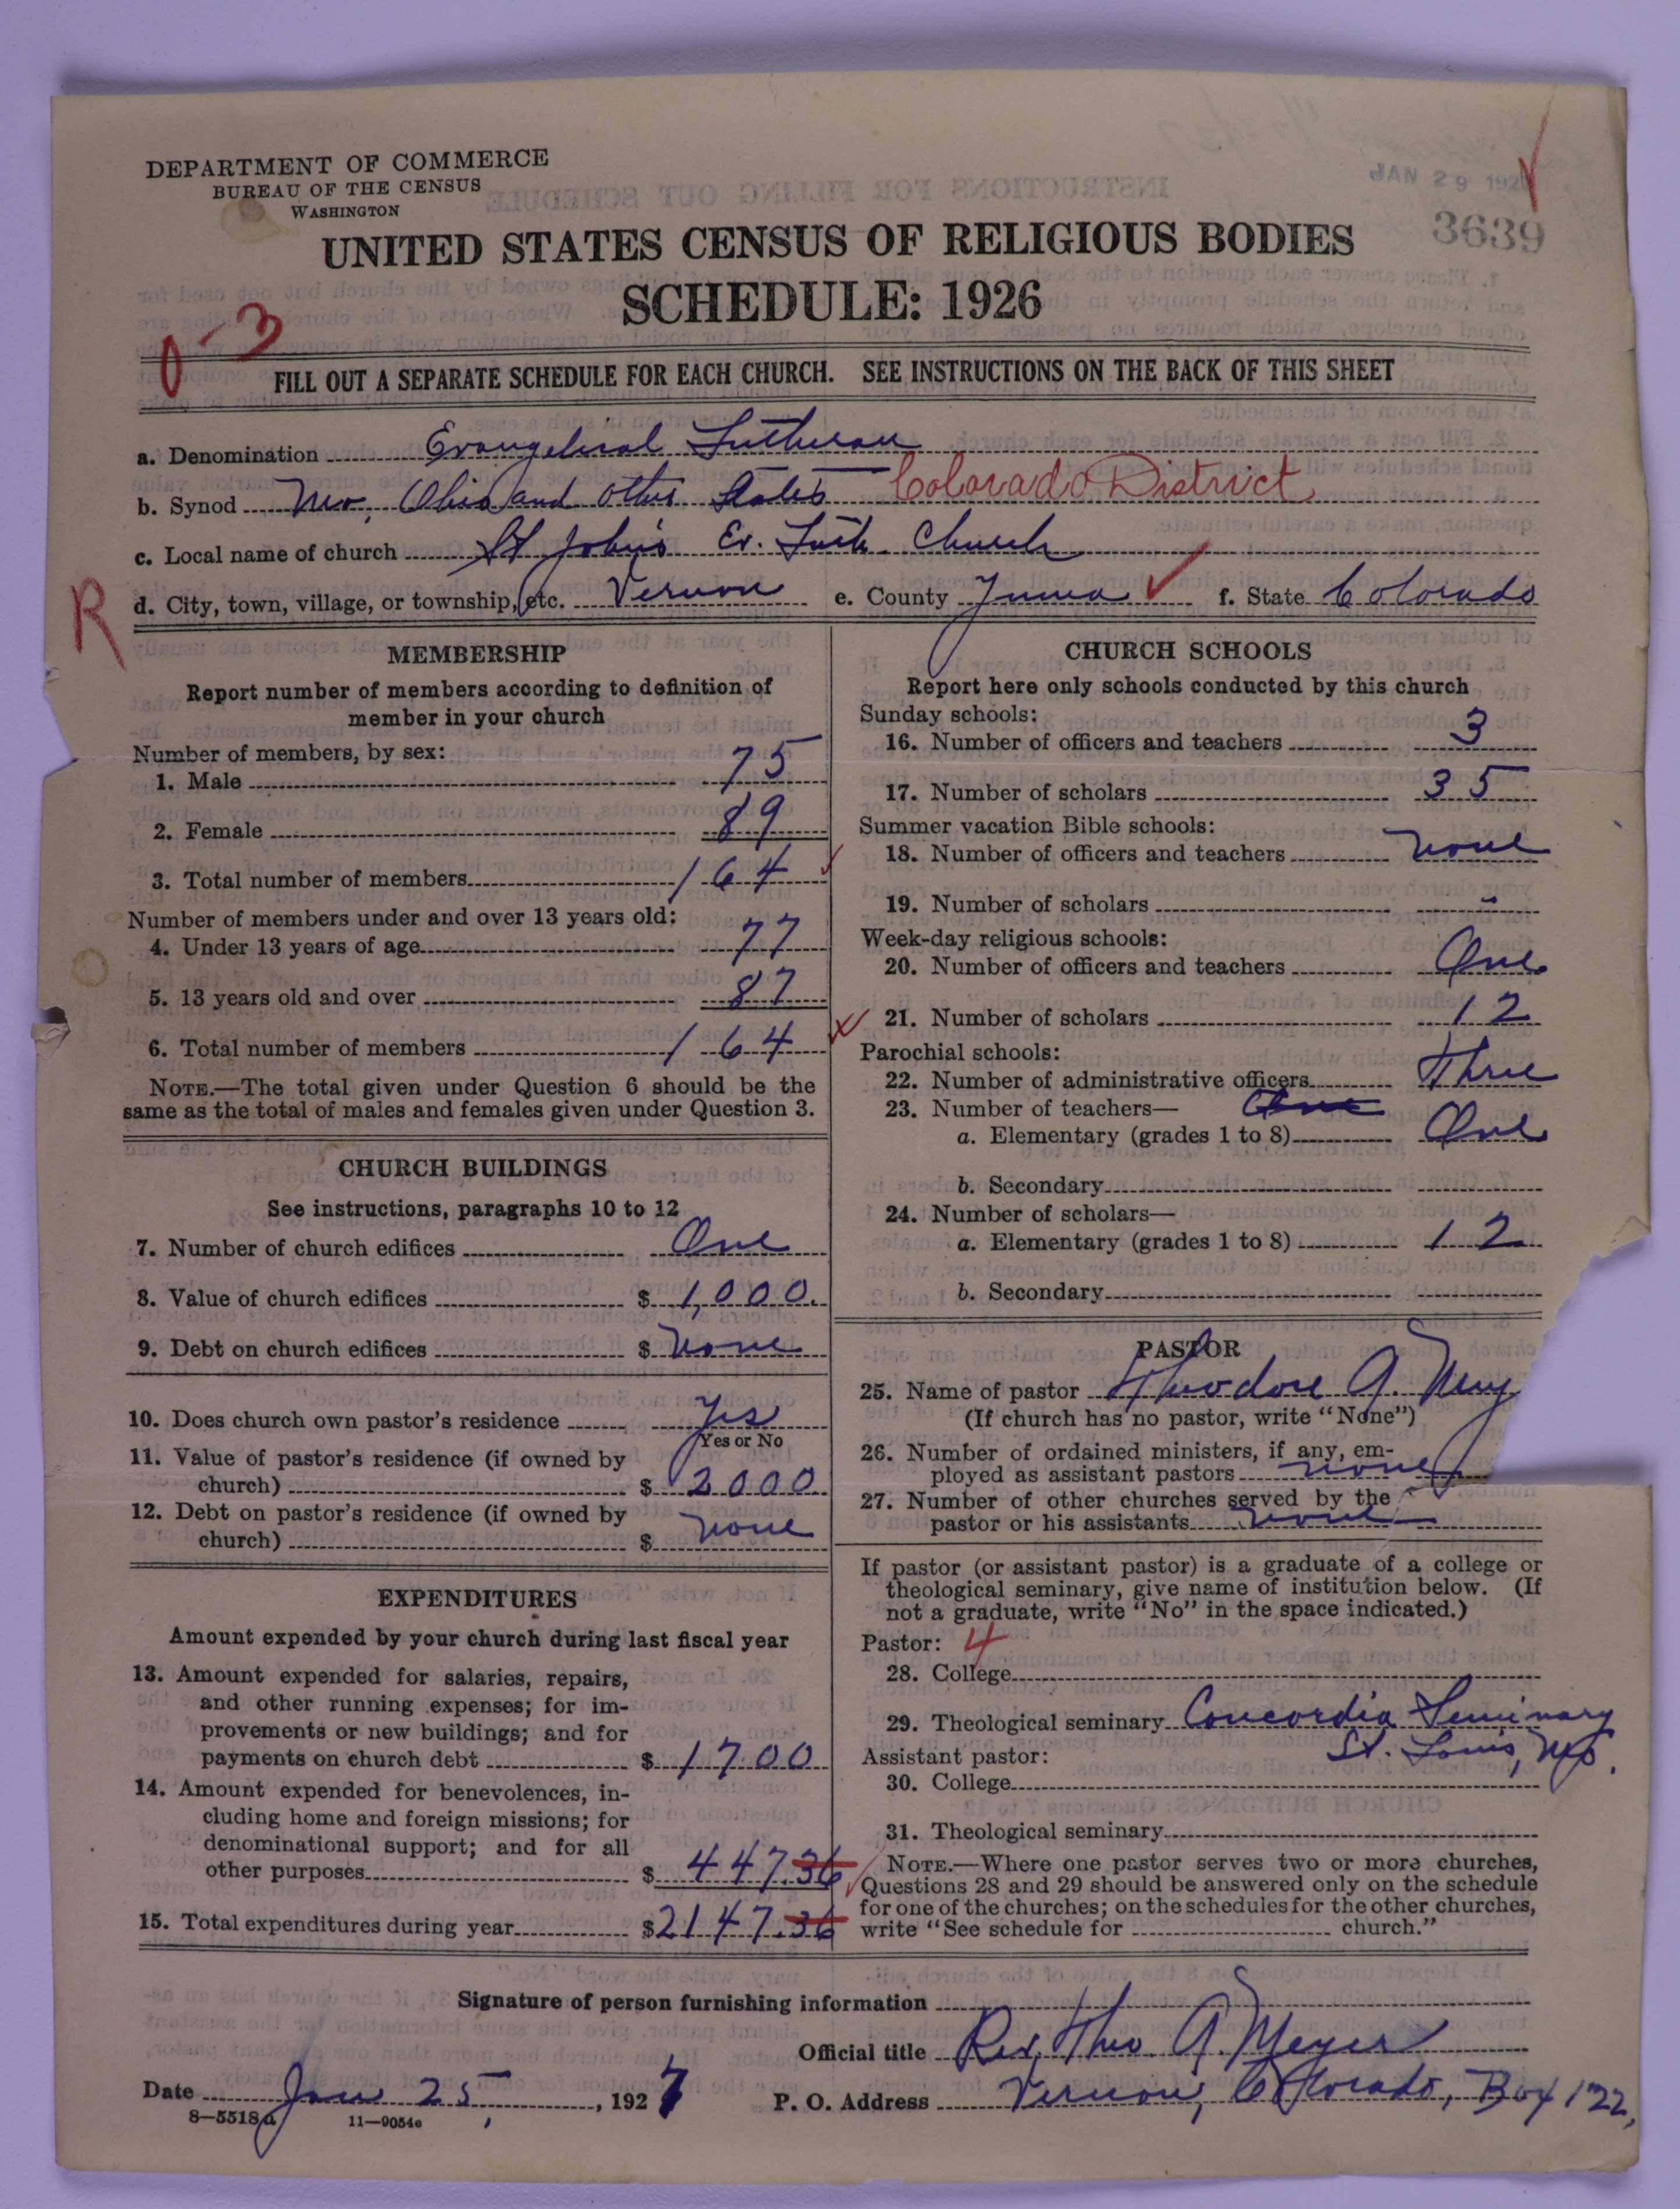 DEPARTMENT OF COMMERCE
BUREAU OF THE CENSUS
WASHINGTON
JAN 29 192
3639
UNITED STATES CENSUS OF RELIGIOUS BODIES
SCHEDULE: 1926
0-3
FILL OUT A SEPARATE SCHEDULE FOR EACH CHURCH. SEE INSTRUCTIONS ON THE BACK OF THIS SHEET
a. Denomination Evangelical Lutheran
b. Synod Mo, Ohio and other States Colorado District
c. Local name of church St John's Ev. Luth. Church
R
d. City, town, village, or township, etc. Vernon e. County Yuma f. State Colorado
MEMBERSHIP
Report number of members according to definition of
member in your church
Number of members, by sex:
1. Male 75
2. Female 89
3. Total number of members 164
Number of members under and over 13 years old:
4. Under 13 years of age 77
5. 13 years old and over 87
6. Total number of members 164
NOTE.—The total given under Question 6 should be the
same as the total of males and females given under Question 3.
CHURCH BUILDINGS
See instructions, paragraphs 10 to 12
7. Number of church edifices One
8. Value of church edifices $ 1,000.
9. Debt on church edifices $ None
10. Does church own pastor's residence Yes
Yes or No
11. Value of pastor's residence (if owned by
church) $ 2000
12. Debt on pastor's residence (if owned by
church) $ none
EXPENDITURES
Amount expended by your church during last fiscal year
13. Amount expended for salaries, repairs,
and other running expenses; for im-
provements or new buildings; and for
payments on church debt $ 1700
14. Amount expended for benevolences, in-
cluding home and foreign missions; for
denominational support; and for all
other purposes $ 447.36
15. Total expenditures during year $ 2147.36
CHURCH SCHOOLS
Report here only schools conducted by this church
Sunday schools:
16. Number of officers and teachers 3
17. Number of scholars 35
Summer vacation Bible schools:
18. Number of officers and teachers none
19. Number of scholars -
Week-day religious schools:
20. Number of officers and teachers One
21. Number of scholars 12
Parochial schools:
22. Number of administrative officers Three
23. Number of teachers— One
a. Elementary (grades 1 to 8) One
b. Secondary
24. Number of scholars—
a. Elementary (grades 1 to 8) 12
b. Secondary
PASTOR
25. Name of pastor Theodore A. Mey
(If church has no pastor, write "None")
26. Number of ordained ministers, if any, em-
ployed as assistant pastors none
27. Number of other churches served by the
pastor or his assistants none
If pastor (or assistant pastor) is a graduate of a college or
theological seminary, give name of institution below. (If
not a graduate, write "No" in the space indicated.)
Pastor: 4
28. College
29. Theological seminary Concordia Seminary
St. Louis, Mo.
Assistant pastor:
30. College
31. Theological seminary
NOTE.—Where one pastor serves two or more churches,
Questions 28 and 29 should be answered only on the schedule
for one of the churches; on the schedules for the other churches,
write "See schedule for church."
Signature of person furnishing information
Official title Rev. Theo. A. Meyer
Date Jan 25, 1927 P. O. Address Vernon, Colorado, Box 122,
8—5518a 11—9054e